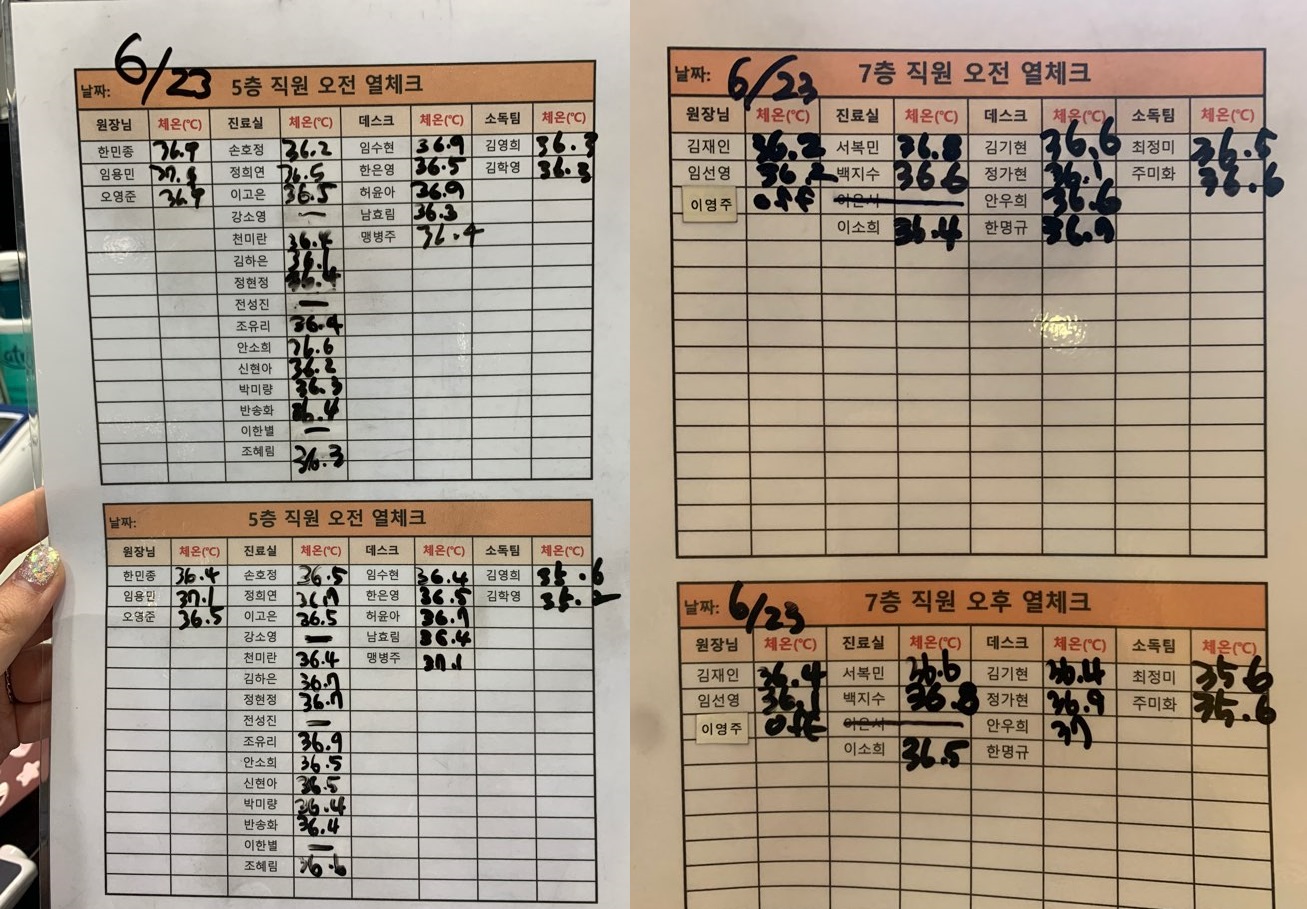 날짜: 6/23 5층 직원 오전 열체크
원장님 체온(℃) 진료실 체온(℃) 데스크 체온(℃) 소독팀 체온(℃)
한민종 36.9 손호정 36.2 임수현 36.9 김영희 36.3
임용민 정희연 36.5 한은영 36.5 김학영 36.3
오영준 36.9 이고은 36.5 허윤아 36.9
강소영 — 남효림 36.3
천미란 36.4 맹병주 36.4
김하은 36.1
정현정 36.4
전성진 —
조유리 36.4
안소희 36.6
신현아 36.2
박미량 36.3
반송화 36.4
이한별 —
조혜림 36.3
날짜: 5층 직원 오전 열체크
원장님 체온(℃) 진료실 체온(℃) 데스크 체온(℃) 소독팀 체온(℃)
한민종 36.4 손호정 36.5 임수현 36.4 김영희 35.6
임용민 37.1 정희연 36.7 한은영 36.5 김학영 35.2
오영준 36.5 이고은 36.5 허윤아 36.7
강소영 — 남효림 36.4
천미란 36.4 맹병주 37.1
김하은 36.7
정현정 36.7
전성진 —
조유리 36.9
안소희 36.5
신현아 36.5
박미량 36.4
반송화 36.4
이한별 —
조혜림 36.6
날짜: 6/23 7층 직원 오전 열체크
원장님 체온(℃) 진료실 체온(℃) 데스크 체온(℃) 소독팀 체온(℃)
김재인 36.2 서복민 36.8 김기현 36.6 최정미 36.5
임선영 36.2 백지수 36.6 정가현 36.1 주미화 36.6
이영주 off 이은서 안우희 36.6
이소희 36.4 한명규 36.9
날짜: 6/23 7층 직원 오후 열체크
원장님 체온(℃) 진료실 체온(℃) 데스크 체온(℃) 소독팀 체온(℃)
김재인 36.4 서복민 36.6 김기현 36.4 최정미 35.6
임선영 36.1 백지수 36.8 정가현 36.9 주미화 35.6
이영주 off 이은서 안우희 37
이소희 36.5 한명규